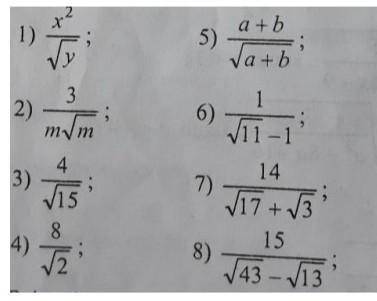 1) x²/√y ;
2) 3/(m√m) ;
3) 4/√15 ;
4) 8/√2 ;
5) (a + b)/√(a + b) ;
6) 1/(√11 – 1) ;
7) 14/(√17 + √3) ;
8) 15/(√43 – √13) ;